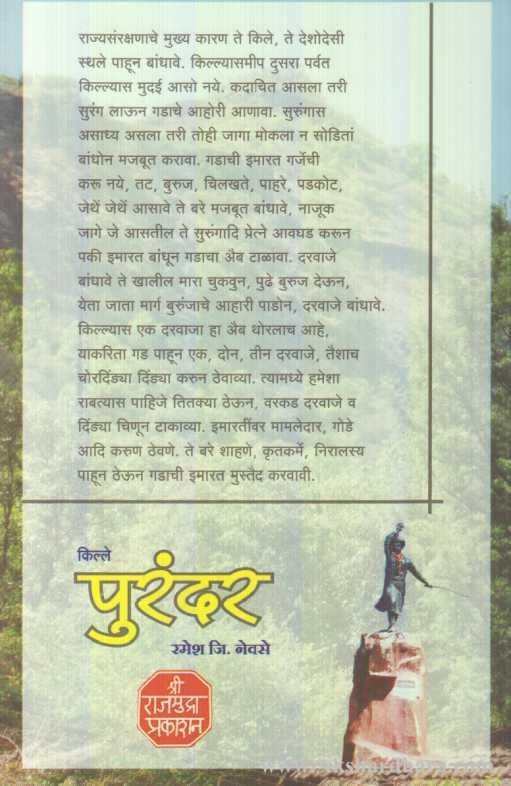 राज्यसंरक्षणाचे मुख्य कारण ते किले, ते देशोदेसी
स्थले पाहून बांधावे. किल्ल्यासमीप दुसरा पर्वत
किल्ल्यास मुदई आसो नये. कदाचित आसला तरी
सुरंग लाऊन गडाचे आहोरी आणावा. सुरुंगास
असाध्य असला तरी तोही जागा मोकला न सोडितां
बांधोन मजबूत करावा. गडाची इमारत गर्जेची
करू नये, तट, बुरुज, चिलखते, पाहरे, पडकोट,
जेथें जेथें आसावे ते बरे मजबूत बांधावे, नाजूक
जागे जे आसतील ते सुरुंगादि प्रेत्ने आवघड करून
पकी इमारत बांधून गडाचा अैब टाळावा. दरवाजे
बांधावे ते खालील मारा चुकवुन, पुढे बुरुज देऊन,
येता जाता मार्ग बुरुंजाचे आहारी पाडोन, दरवाजे बांधावे.
किल्ल्यास एक दरवाजा हा अैब थोरलाच आहे,
याकरिता गड पाहून एक, दोन, तीन दरवाजे, तैशाच
चोरदिंड्या दिंड्या करुन ठेवाव्या. त्यामध्ये हमेशा
राबत्यास पाहिजे तितक्या ठेऊन, वरकड दरवाजे व
दिंड्या चिणून टाकाव्या. इमारतींबर मामलेदार, गोडे
आदि करुण ठेवणे. ते बरे शाहणे, कृतकर्मे, निरालस्य
पाहून ठेऊन गडाची इमारत मुस्तैद करवावी.
किल्ले
पुरंदर
रमेश जि. नेवसे
श्री
राजमुद्रा
प्रकाशन